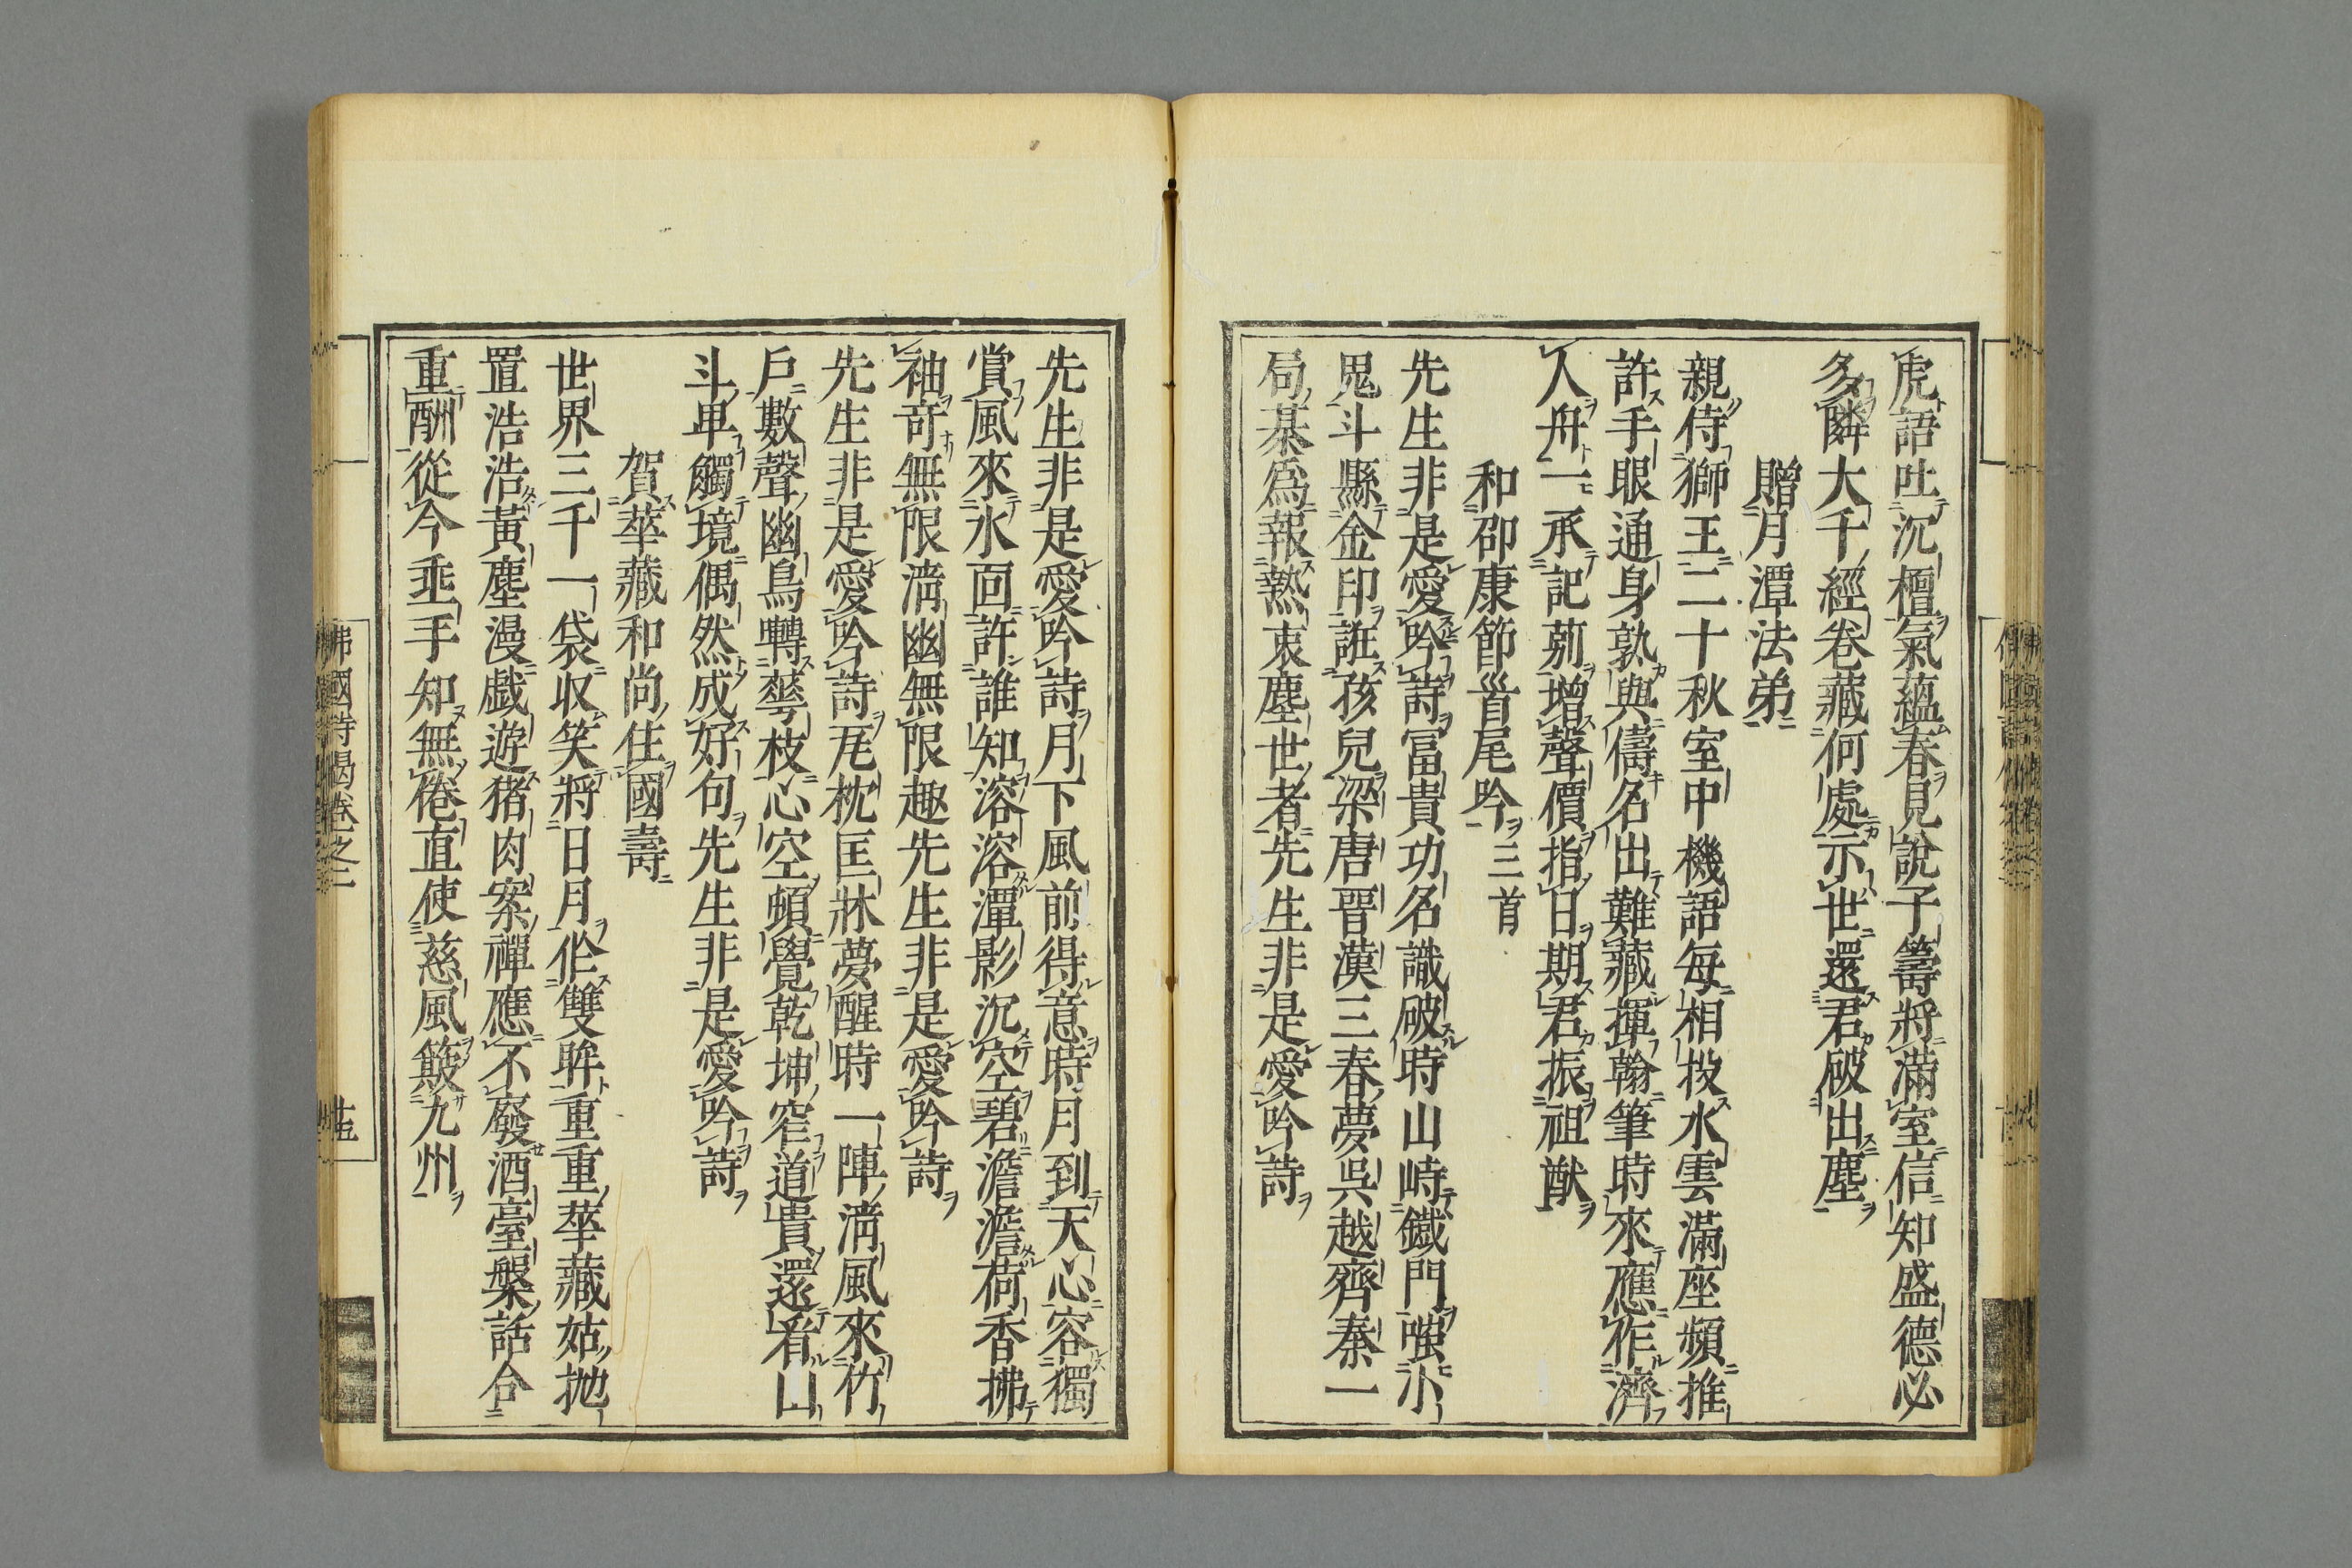 虎語吐沉檀氣蘊春見說子籌將滿室信知盛德必
多隣大千經卷藏何處示世還君破出塵
贈月潭法弟
親侍獅王二十秋室中機語每相投水雲滿座頻推
許手眼通身孰與儔名出難藏揮翰筆時來應作濟
人舟一承記莂增聲價指日期君振祖猷
和邵康節首尾吟三首
先生非是愛吟詩冨貴功名識破時山峙鐵門嗤小
鬼斗縣金印誑孩兒梁唐晉漢三春夢吳越齊秦一
局棊爲報熱衷塵世者先生非是愛吟詩
先生非是愛吟詩月下風前得意時月到天心容獨
賞風來水面許誰知溶溶潭影沉空碧澹澹荷香拂
袖奇無限淸幽無限趣先生非是愛吟詩
先生非是愛吟詩瓦枕匡牀夢醒時一陣淸風來竹
戶數聲幽鳥囀蕚枝心空頓覺乾坤窄道貴還看山
斗卑觸境偶然成好句先生非是愛吟詩
賀萃藏和尚住國壽
世界三千一袋収笑將日月作雙眸重重華藏姑拋
置浩浩黃塵漫戲遊猪肉案禪應不廢酒臺槃話合
重酬從今垂手知無倦直使慈風簸九州
佛國詩偈卷之二
十五